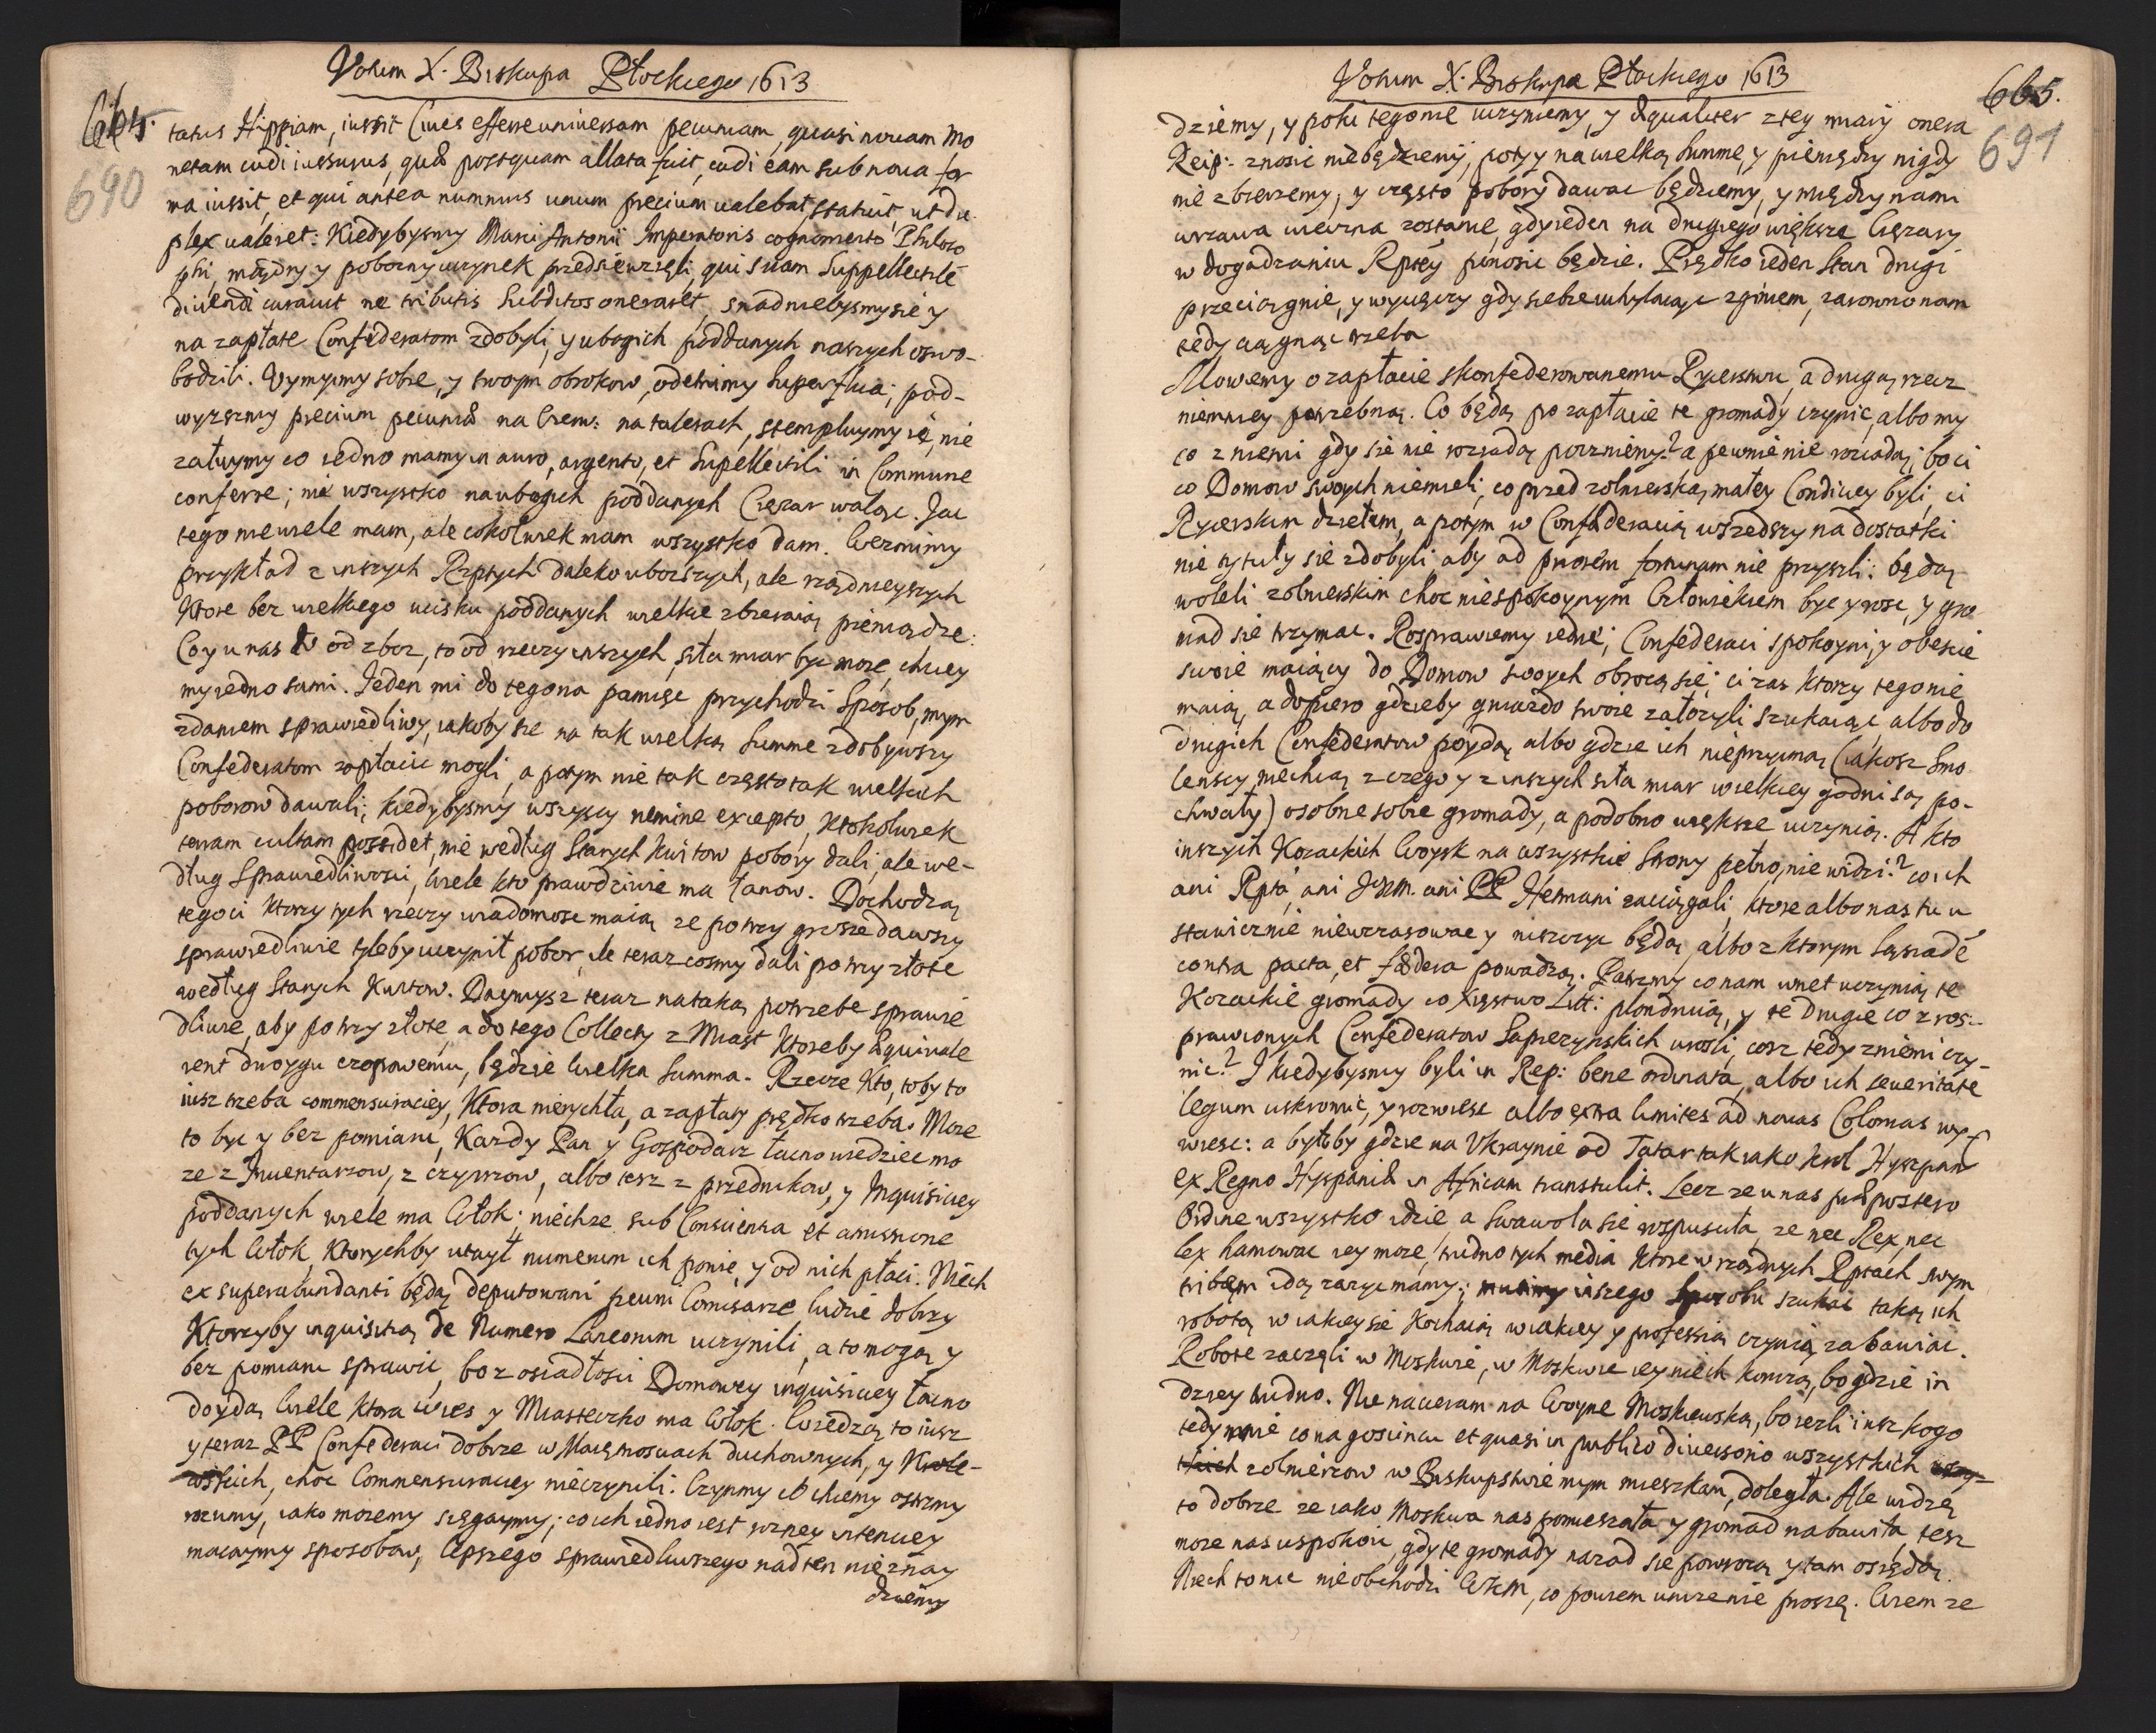 Votum X. Biskupa Płockiego 1613
664.
690
tatus Hippiam, iussit Ciues efferre uniuersam pecuniam, quasi nouam mo
netam cudi iussurus, quæ postquam allata fuit, cudi eam sub noua for
ma iussit, et qui antea nummus unum precium ualebat, statuit, ut du
plex ualeret: Kiedybysmy Marci Antonii Imperatoris cognomento Philoso
phi, mądry y pobozny uczynek przedsiewzieli, qui suam Suppellectile
diuendi curauit ne tributis Subditos oneraret, snadniebysmy sie y
na zapłate Confederatom zdobyli, y ubogich poddanych naszych oswo-
bodzili. Uymiymy sobie, y swoym obrokow, odetnimy Superflua; pod-
wyzszmy precium pecuniæ na Czerw: na talerach, stempluymy ię, nie
załuymy co iedno mamy in auro, argento, et Supellectili in Commune
conferre; nie wszystko na ubogich poddanych Ciężar waląc. Jac
tego niewiele mam, ale cokolwiek mam wszystko dam. Wezmimy
przykład z inszych Rzptych daleko uboższych, ale rządnieyszych
Ktore bez wielkiego ucisku poddanych wielkie zbieraią pieniądze:
Co y u nas to od zboz, to od rzeczy inszych, siła miar byc moze, chciey
my iedno sami. Jeden mi do tego na pamięc przychodzi Sposob, mym
zdaniem sprawiedliwy, iakoby sie na tak wielką Summe zdobywszy
Confederatom zapłacic mogli, a potym nie tak często tak wielkich
poborow dawali; kiedybysmy wszyscy nemine excepto, Ktokolwiek
terram cultam possidet, nie według Starych Kwitow pobory dali, ale we-
dług Sprawiedliwosci, wiele kto prawdziwie ma łanow. Dochodzą
tego ci ktorzy tych rzeczy wiadomosc maią ze po trzy grosze dawszy
sprawiedliwie tyleby uczynił pobor, ile teraz cosmy dali po trzy złote
według Starych Kwitow. Daymysz teraz na taką potrzebe sprawie
dliwie, aby po trzy złote, a do tego Collecty z Miast Ktoreby æquiuale
rent dwoygu czopowemu, będzie wielka Summa. Rzecze Kto, toby to
iusz trzeba commensuraciey, Ktora nierychła, a zapłaty prędko trzeba. Moze
to byc y bez pomiaru, Kazdy Pan y Gospodarz łacno wiedziec mo
ze z Inwentarzow, z czynszow, albo tesz z przednikow, y Inquisiciey
poddanych wiele ma Włok; niechze sub Conscientia et amissione
tych włok, Ktorychby utaył numerum ich powie, y od nich płaci. Niech
ex superabundanti będą deputowani pewni Comisarze, ludzie dobrzy
Ktorzyby inquisitią de Numero Laneorum uczynili, a to mogą y
bez pomiaru sprawic, bo z osiadłosci Domowey inquisiciey łacno
doydą wiele ktora wies y Miasteczko ma Włok. Wiedzą to iusz
y teraz PP Confederaci dobrze w Maiętnosciach duchownych, y Krole-
wskich, choc Commensuraciey nieczynili. Czynmy co chcemy ostrzmy
rozumy, iako mozemy sięgaymy; co ich iedno iest rozney intenciey
macaymy sposobow, lepszego sprawiedliwszego nad ten nie znay
dziemy
Votum X. Biskupa Płockiego 1613
665.
691
dziemy, y poki tego nie uczyniemy, y æqualiter z tey miary onera
Reip: znosic niebędziemy, poty y na wielką summe, y pieniędzy nigdy
nie zbierzemy, y często pobory dawac będziemy, y między nami
wrzawa wieczna zostanie, gdy ieden na drugiego większe Ciężary
w dogadzaniu Rptey pinosic będzie. Prędko ieden Stan drugi
przeciągnie, y wyuęczy gdy siebie uchylaiąc zginiem, zarowno nam
tedy ciągnąc trzeba
Mowiemy o zapłacie skonfederowanemu Rycerstwu, a drugą rzecz
niemniey potrzebną. Co będą po zapłacie te gromady czynic, albo my
co z niemi gdy sie nie rozsiadą poczniemy? a pewnie nie rozsiadą; bo ci
co Domow swoych niemieli, co przed zolnierską małey Condiciey byli, ci
Rycerskim dziełem, a potym w Confederacią wszedszy na dostatki
nie tytuły sie zdobyli aby ad priorem fortunam nie przyszli: będą
woleli zolnierskim choc niespokoynym Człowiekiem byc y rosc, y gro
mad sie trzymac. Rosprawiemy iednę; Confederaci spokoyni, y obescie
swoie maiący do Domow swoych obrocą się; ci zas Ktorzy tego nie
maią, a dopiero gdzieby gniazdo swoie załozyli szukaiąc, albo do
drugich Confederatow poydą, albo gdzie ich nieprzyimą (iakosz Smo
lenscy niechcą z czego y z inszych siła miar wielkiey godni są po-
chwały) osobne sobie gromady, a podobno większe uczynią. A kto
inszych Kozackich Woysk na wszystkie Strony pełno, nie widzi? co ich
ani Rpta, ani JKM. ani PP Hetmani zaciągali, ktore albo nas tu u
stawicznie niewczasowac y niszczyc będą, albo z ktorym Sąsiade
contra pacta, et fædera powadzą. Patrzmy co nam wnet uczynią te
Kozackie gromady co Xięstwo Litt: plondruią, y te drugie co z ros-
prawionych Confederatow Sapiezynskich urosli, cosz tedy z niemi czy-
nic? I kiedybysmy byli in Rep: bene ordinata, albo ich seueritate
legum uskromic, y rozwiesc albo extra limites ad nouas Colonias wy-
wiesc: a byłoby gdzie na Ukraynie od Tatar tak iako Krol Hyszpan
ex Regno Hyspaniæ in Africam transtulit. Lecz ze u nas præpostero
Ordine wszystko idzie, a Swawola sie rospusciła, ze nec Rex, nec
lex hamowac iey moze, trudno tych media Ktore w rządnych Rptach swym
tribem idą zazyc mamy; musimy inszego Sposobu szukac taką ich
robotą w iakiey sie Kochaią w iakiey y professią czynią zabawiac.
Robote zaczęli w Moskwie, w Moskwie iey niech konczą, bo gdzie in
dziey trudno. Nie nacieram na Woyne Moskiewską, bo iezli insz kogo
tedy mnie co na goscincu et quasi in publico diuersorio wszystkich
zolnierzow w Biskupstwie mym mieszkam, doległa. Ale widzę
to dobrze ze iako Moskwa nas pomieszała y gromad nabawiła, tesz
moze nas uspokoic, gdy te gromady nazad sie powrocą y tam osiędą.
Niech to nic nie obchodzi WKM, co powiem unizenie proszę. Wiem ze